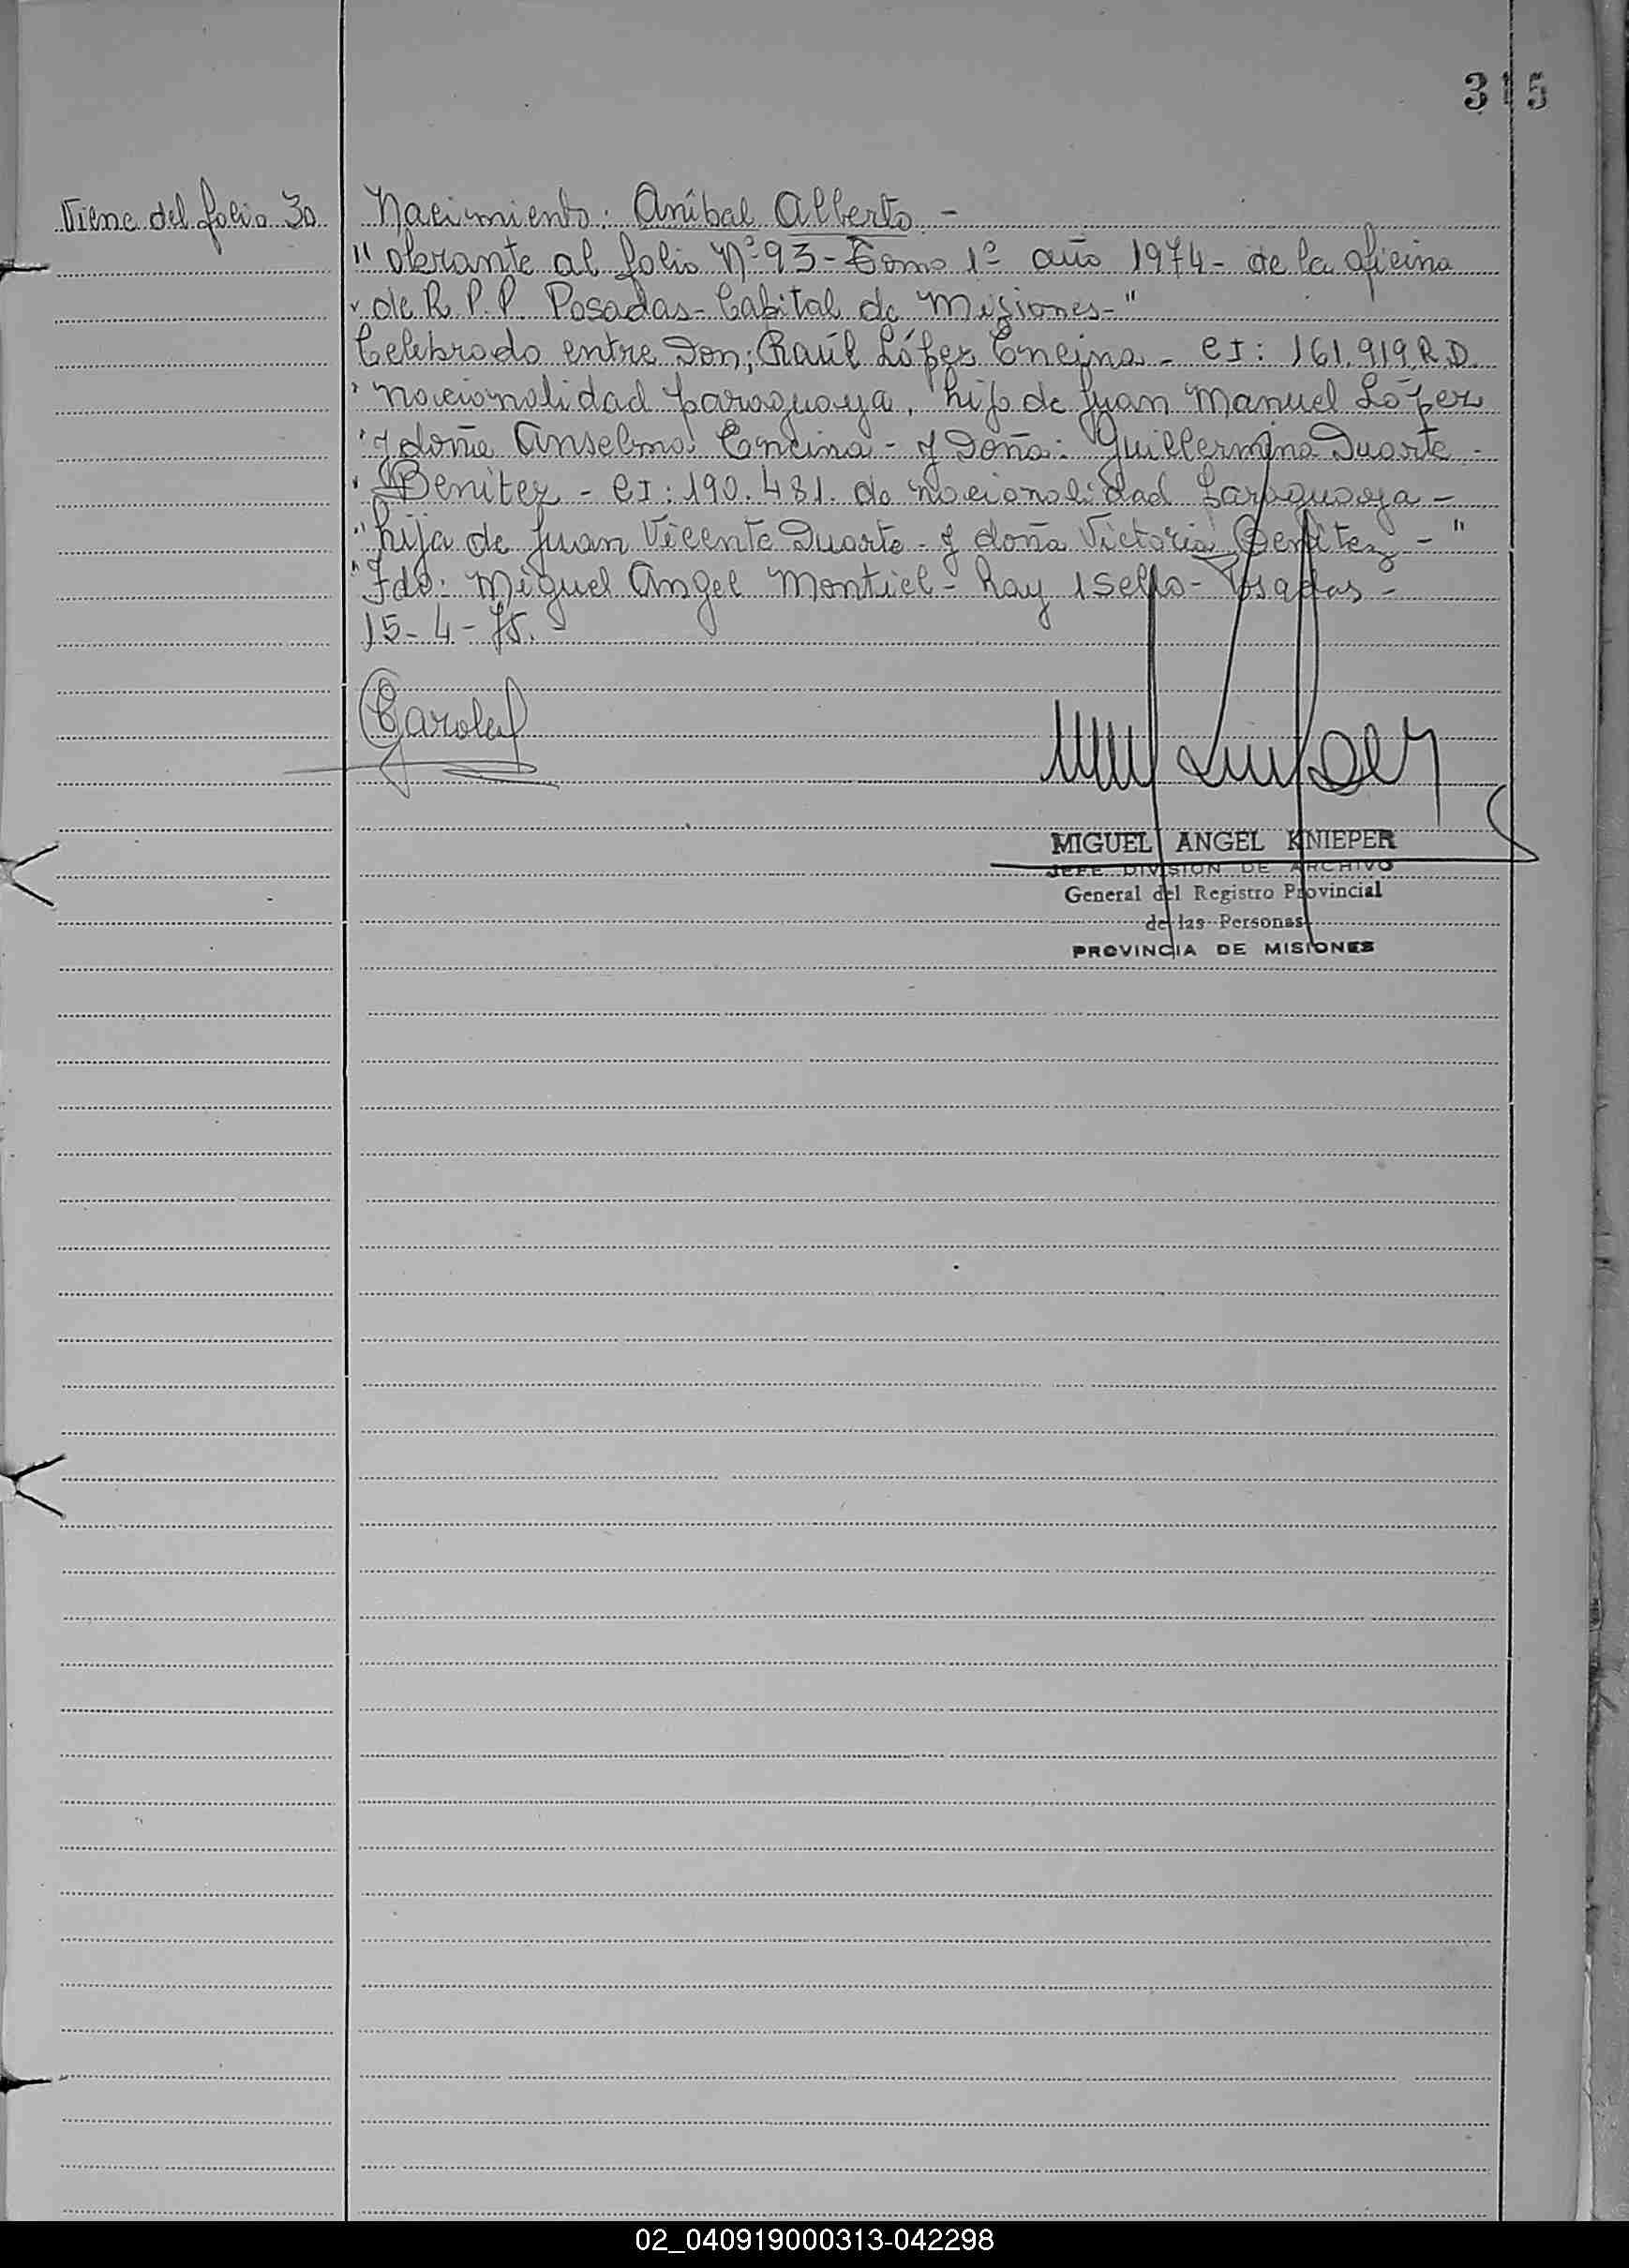 315
Viene del folio 30
Nacimiento: Aníbal Alberto -
" obrante al folio Nº 93 - Tomo 1º año 1974 - de la oficina
" de R. P. P. Posadas - Capital de Misiones - "
Celebrado entre Don; Raúl López Encina - CI: 161.919, R.D.
" nacionalidad paraguaya, hijo de Juan Manuel López
" y doña Anselma Encina - y Doña: Guillermina Duarte -
" Benitez - CI: 190.481. de nacionalidad Paraguaya -
" hija de Juan Vicente Duarte - y doña Victoria Benitez - "
" Fdo: Miguel Angel Montiel - hay 1 Sello - Posadas -
15 - 4 - 75.
MIGUEL ANGEL KNIEPER
JEFE DIVISION DE ARCHIVO
General del Registro Provincial
de las Personas
PROVINCIA DE MISIONES
02_040919000313-042298